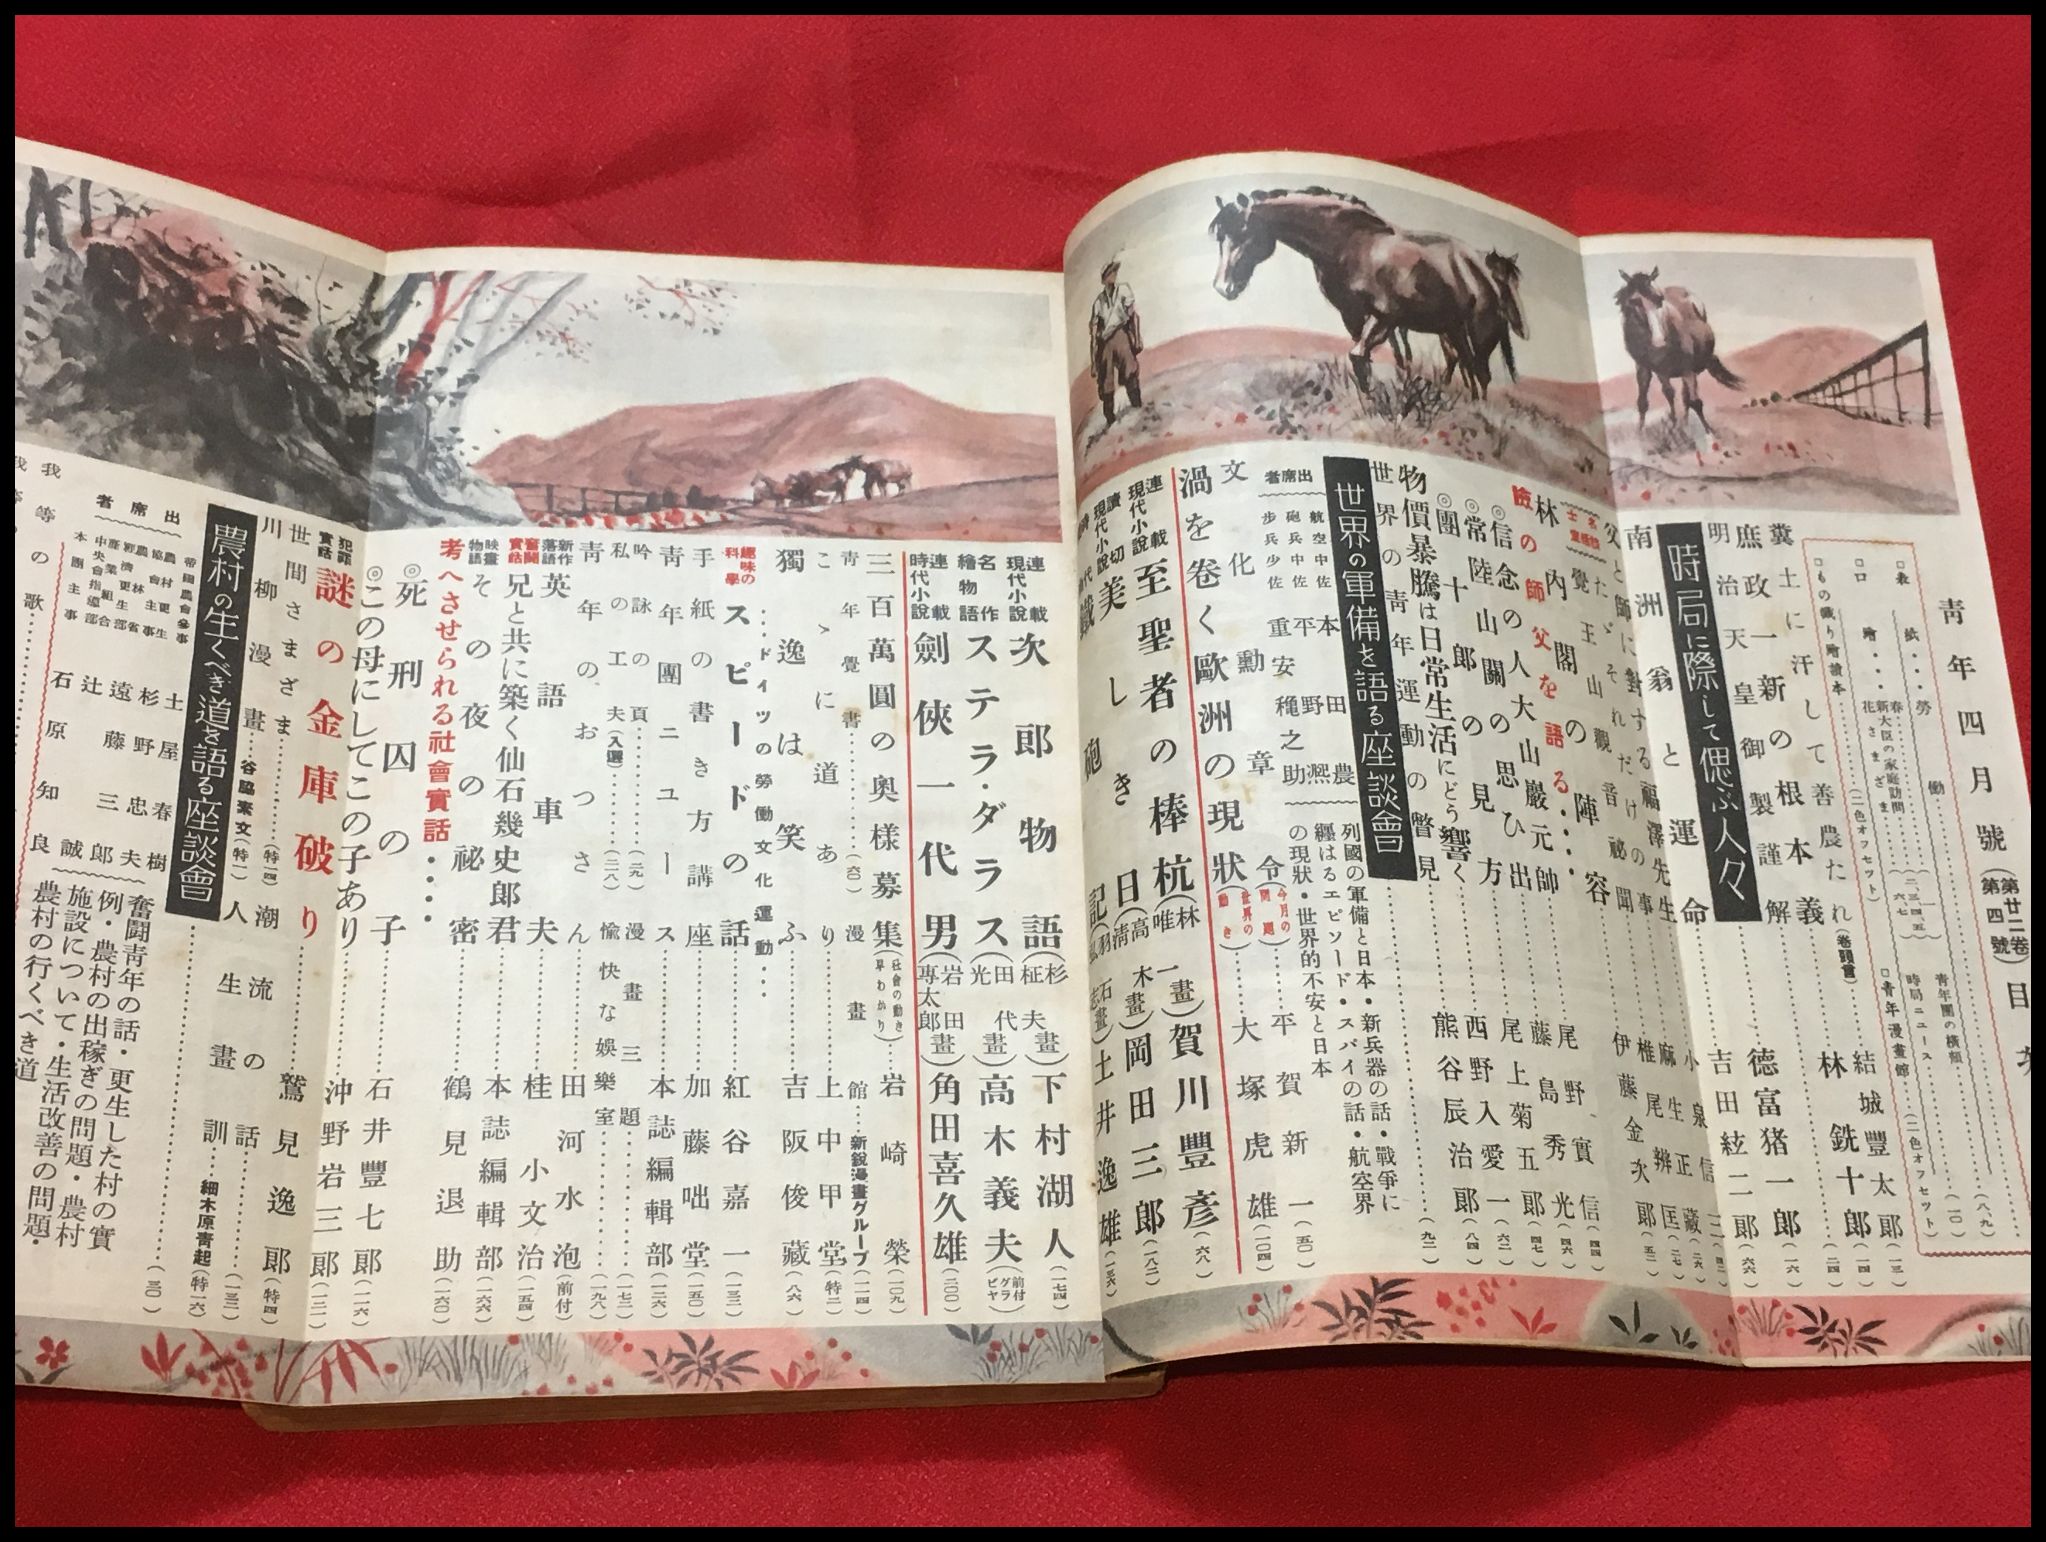 青年四月號(第廿二卷第四號)目次
□表紙・・勞働
□口繪・・・春
新大臣の家庭訪問
花さまざま
(二色オフセット)
青年團の橫顏
時局ニュース
□青年漫畫館
(二色オフセット)
糞土に汗して善農たれ(卷頭言)結城豐太郎
庶政一新の根本義 林銑十郎
明治天皇御製謹解 德富猪一郎(一六)
時局に際して偲ぶ人々
南洲翁と運命 吉田絃二郎(六六)
父と師に對する福澤先生 小泉信三
たゞそれだけの事 麻生正藏(二六)
覺王山觀音祕聞 椎尾辨匡(二七)
伊藤金次郎(五二)
林内閣の陣容 尾野實信(四四)
師父を語る・・・・
信念の人大山嚴元帥 尾野實信
◎常陸山關の思ひ出 尾上菊五郎(四七)
◎團十郎の見方 西野入愛一(六二)
物價暴騰は日常生活にどう響く 熊谷辰治郎(八四)
世界の青年運動の瞥見(九二)
世界の軍備を語る座談會
列國の軍備と日本・新兵器の話・戰爭に
纒はるエピソード・スパイの話・航空界
の現狀・世界的不安と日本
出席者
航空中佐 本田農
砲兵中佐 平野凞
步兵少佐 重安穐之助
文化勳章令(今月の問題)平賀新一(五〇)
渦を卷く歐洲の現狀(世界の動き)大塚虎雄(一〇四)
連載現代小說 至聖者の棒杭(林唯一畫)賀川豐彥(六八)
讀切現代小說 美しき日(高木淸畫)岡田三郎(一八二)
砲記 土井逸雄(一三六)
連載現代小說 次郎物語(杉田柾夫畫)下村湖人(一七四)
名作繪物語 ステラ・ダラス(田代光畫)高木義夫(前付グラビヤ)
連載時代小說 劍俠一代男(岩田專太郎畫)角田喜久雄(二〇〇)
三百萬圓の奧樣募集(社會の動き早わかり)岩崎榮(一〇九)
青年覺書(六〇)
漫畫館 新銳漫畫グループ(一一四)
こゝに道あり 上中甲堂(特二)
獨逸は笑ふ 吉阪俊藏(八六)
・・・ドイツの勞働文化運動・・・
趣味の科學 スピードの話 紅谷嘉一(一三二)
手紙の書き方講座 加藤咄堂(一五〇)
青年團ニュース 本誌編輯部(一二六)
吟詠の頁(一元)
漫畫三題(一七二)
私の工夫(入選)(二八)
愉快な娛樂室(一九八)
青年のおつさん 田河水泡(前付)
新作落語 英語車夫 桂小文治(一五四)
奮鬪實話 兄と共に築く仙石幾史郎君 本誌編輯部(一六六)
映畫物語 その夜の祕密 鶴見退助(一六〇)
考へさせられる社會實話・・・・
◎死刑囚の子 石井豐七郎(一一六)
◎この母にしてこの子あり 沖野岩三郎(一二一)
犯罪實話 謎の金庫破り 鷲見逸郎(特四)
世間さまざま(特一四)
潮流の話(一三二)
川柳漫畫 谷脇素文(特一)
人生畫訓 細木原青起(特一六)
農村の生くべき道を語る座談會(三〇)
奮鬪青年の話・更生した村の實
例・農村の出稼ぎの問題・農村
施設について・生活改善の問題・
農村の行くべき道
出席者
帝國農會參事 土屋春樹
農村更生協會主事 杉野忠夫
農林省經濟更生部 遠藤三郎
產業組合中央會指導部 辻誠
本團主事 石原知良
我等の歌